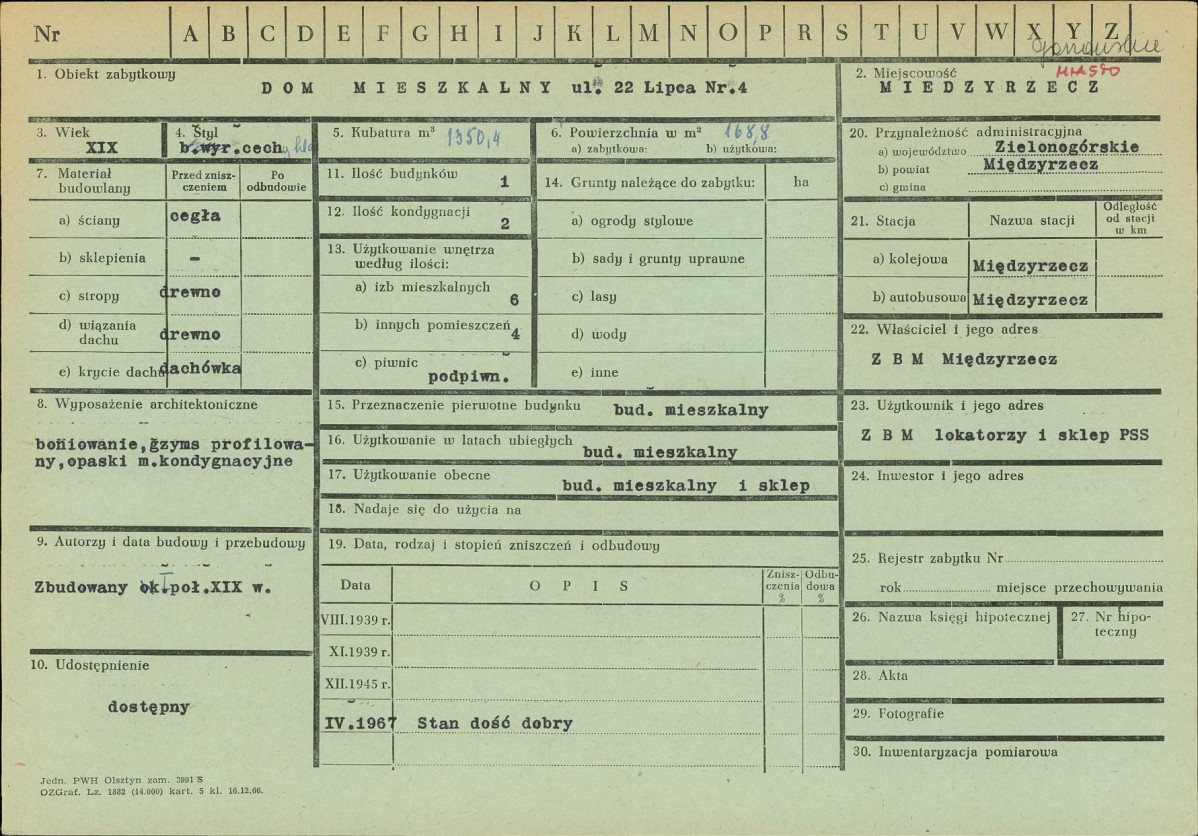 Nr A B C D E F G H I J K L M N O P R S T U V W X Y Z
MIASTO
1. Obiekt zabytkowy
DOM MIESZKALNY ul. 22 Lipca Nr.4
2. Miejscowość
MIEDZYRZECZ
3. Wiek
XIX
4. Styl
b.wyr.cech
5. Kubatura m³ 1350,4
6. Powierzchnia w m² 168,8
a) zabytkowa: b) użytkowa:
7. Materiał budowlany
Przed zniszczeniem
Po odbudowie
a) ściany cegła
b) sklepienia -
c) stropy drewno
d) wiązania dachu drewno
e) krycie dachu dachówka
8. Wyposażenie architektoniczne
boniowanie,gzyms profilowa-
ny,opaski m.kondygnacyjne
9. Autorzy i data budowy i przebudowy
Zbudowany ok.I poł.XIX w.
10. Udostępnienie
dostępny
11. Ilość budynków 1
12. Ilość kondygnacji 2
13. Użytkowanie wnętrza
według ilości:
a) izb mieszkalnych 6
b) innych pomieszczeń 4
c) piwnic
podpiwn.
14. Grunty należące do zabytku: ha
a) ogrody stylowe
b) sady i grunty uprawne
c) lasy
d) wody
e) inne
15. Przeznaczenie pierwotne budynku bud. mieszkalny
16. Użytkowanie w latach ubiegłych
bud. mieszkalny
17. Użytkowanie obecne
bud. mieszkalny i sklep
18. Nadaje się do użycia na
19. Data, rodzaj i stopień zniszczeń i odbudowy
Data OPIS Zniszczenia % Odbudowa %
VIII.1939 r.
XI.1939 r.
XII.1945 r.
IV.1967 Stan dość dobry
20. Przynależność administracyjna
a) województwo Zielonogórskie
b) powiat Międzyrzecz
c) gmina
21. Stacja Nazwa stacji Odległość od stacji w km
a) kolejowa Międzyrzecz
b) autobusowa Międzyrzecz
22. Właściciel i jego adres
Z B M Międzyrzecz
23. Użytkownik i jego adres
Z B M lokatorzy i sklep PSS
24. Inwestor i jego adres
25. Rejestr zabytku Nr
rok miejsce przechowywania
26. Nazwa księgi hipotecznej
27. Nr hipo-
teczny
28. Akta
29. Fotografie
30. Inwentaryzacja pomiarowa
Jedn. PWH Olsztyn zam. 3991 S
OZGraf. Lz. 1882 (14.000) kart. 5 kl. 16.12.66.